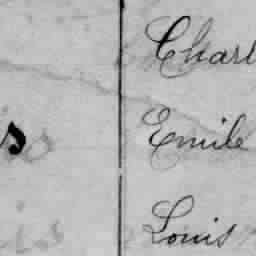 Charl
s Emile
Louis